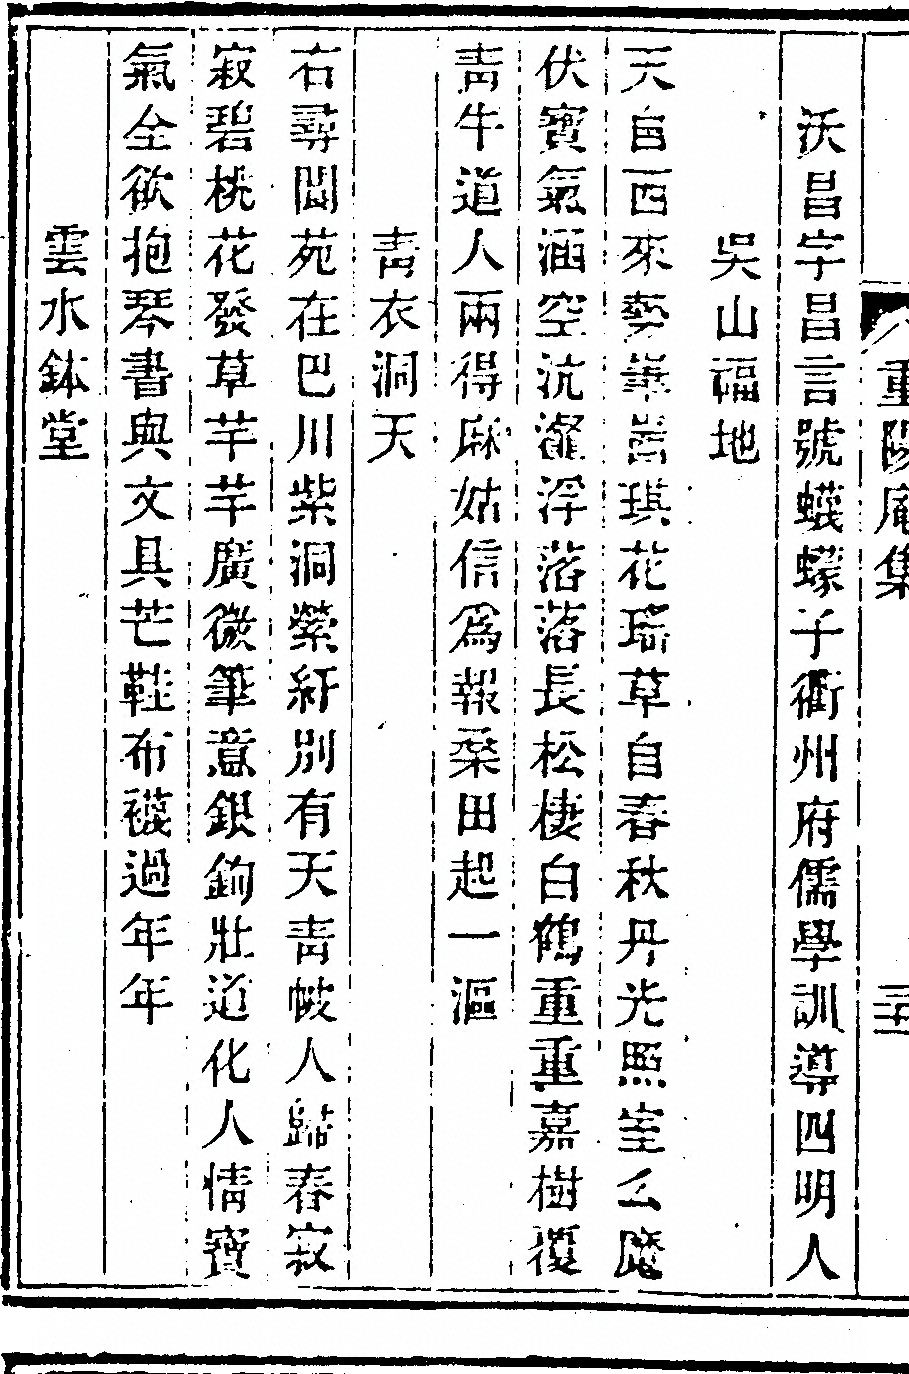 重陽庵集
三十二
沃昌字昌言號蠛蠓子衢州府儒學訓導四明人
吳山福地
天自西來勢崋嵩琪花瑤草自春秋丹光照室么魔
伏寶氣涵空沆瀣浮落落長松棲白鶴重重嘉樹覆
靑牛道人兩得麻姑信爲報桑田起一漚
靑衣洞天
右尋閬苑在巴川紫洞縈紆別有天靑帔人歸春寂
寂碧桃花發草芊芊廣微筆意銀鉤壯道化人情寶
氣全欲抱琴書與文具芒鞋布襪過年年
雲水鉢堂